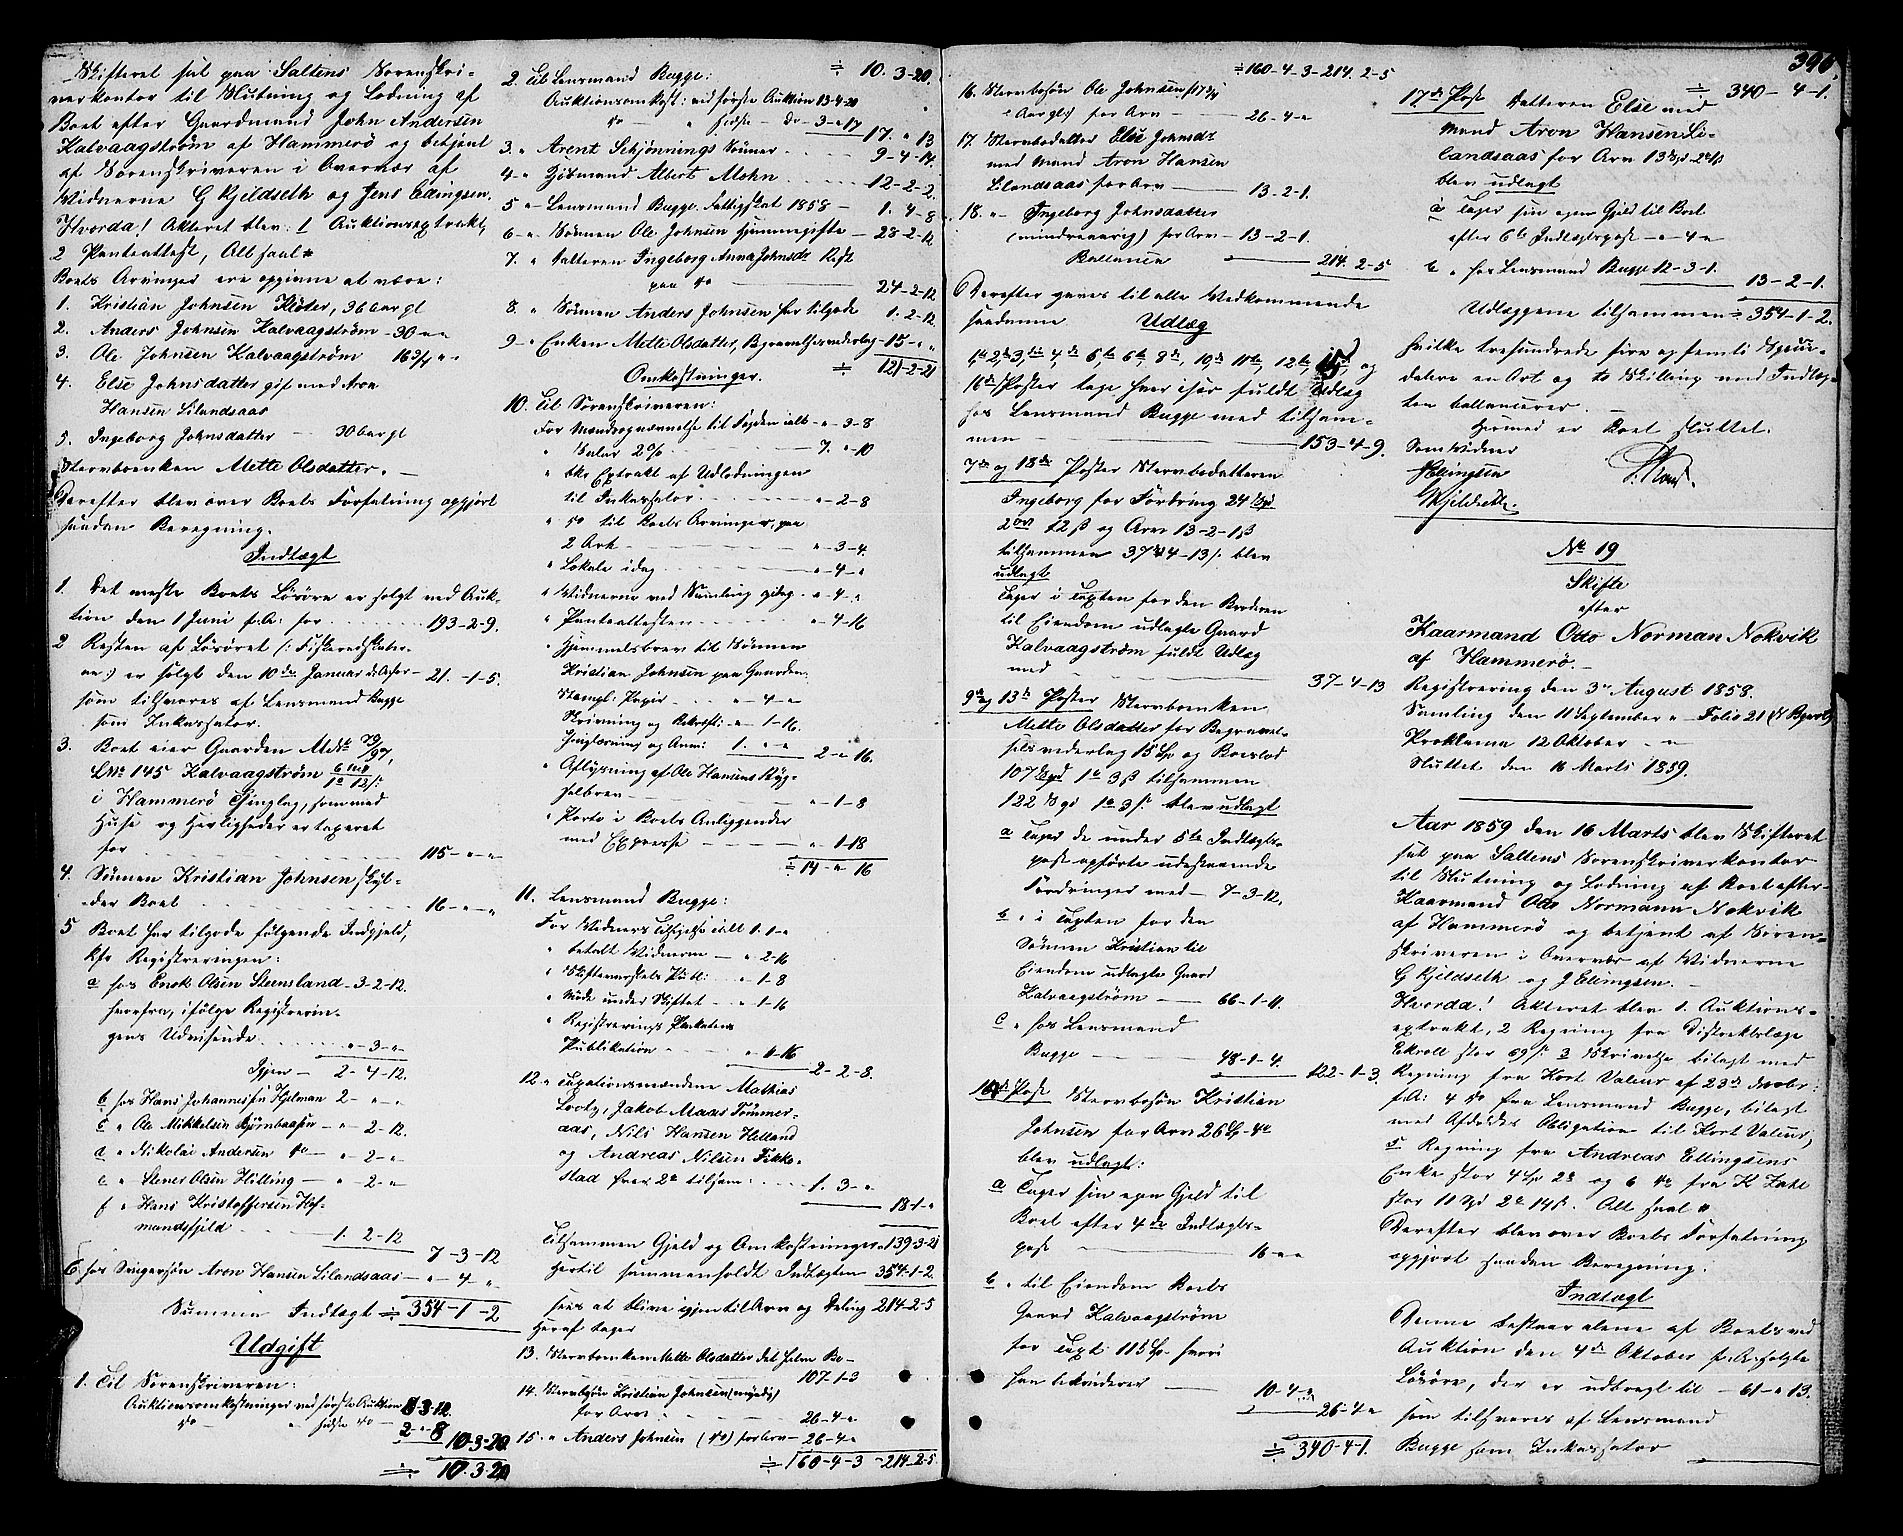 Skifteret sat paa Saltens Sorenskri-
verkontor til Slutning og Lodning af
Boet efter Gaardmand John Andersen
Kalvaagström af Hammerö og betjent
af Sorenskriveren i Overvær af
Vidnerne G Kjeldseth og Jens Edingsen.
Hvorda! Akteret blev: 1 Auktionsextrakt,
2 Panteattest, Alt saal.
Boets Arvinger ere opgivne at være:
1. Kristian Johnsen Klöter, 36 aar gl
2. Anders Johnsen Kalvaagström - 30 " "
3. Ole Johnsen Kalvaagström 16 3/4 " "
4. Else Johnsdatter gift med Aron
Hansen Lilandsaas
5. Ingeborg Johnsdatter - 30 aar gl
Stervboenken Mette Olsdatter. -
Derefter blev over Boets Forfatning opgjort
saadan Beregning.
Indtægt
1. Det meste Boets Lösöre er solgt ved Auk-
tion den 1 Juni f.A: for 193-2-9.
2 Resten af Lösöret (: Fiskeredskaber-
ne :) er solgt den 10de Januar d:A: for - 21.-1-5.
som tilsvares af Lensmand Bugge
som Inkassator.
3. Boet eier Gaarden M:No 79/97,
LNo 145 Kalvaagström
i Hammerö Thinglag, som med
Huse og Herligheder er taxeret
for 115-"-"
4. Sönnen Kristian Johnsen skyl-
der Boet 16-"-"
5 Boet har tilgode fölgende Indgjeld,
kfr Registreringen:
a hos Enok Olsen Steensland - 3-2-12.
hvorfra, ifölge Registrerin-
gens Udvisende "-3-"
Igjen - 2-4-12.
b hos Hans Johannesen Hjelman 2-"-"
c " Ole Mikkelsen Björnbaasen - "-2-12.
d " Nikolai Andersen do - "-2-"
e " Stener Olsen Hilling - "-2-"
f " Hans Kristoffersen Hof-
mandsfjeld 1.2-12
7-3-12
6. hos Svigersön Aron Hansen Lilandsaas - "-4-"
Summa Indtægt ÷ 354-1-2
Udgift
1. Til Sorenskriveren:
Auktionsomkostninger ved förste Auktion 8-3-12.
do - " sidste do - 2-"-8 10-3-20
÷ 10.3-20
÷ 10.3-20.
2. Til Lensmand Bugge:
Auktionsomkost: ved förste Auktion 13-4-20
do - " sidste - do - 3-"-17
17."13
3. " Arent Schjönnings Sönner 9-4-14.
4- " Giftmand Albert Mohn 12-2-2
5 " Lensmand Bugge Fattigskat 1858 - 1.4-8
6- " Sönnen Ole Johnsen Hjemmegifte - 28-2-12
7. " Datteren Ingeborg Anna Johnsdr Rest
paa do 24-2-12
8. " Sönnen Anders Johnsen har tilgode 1.2-12.
9- " Enken Mette Olsdatter, Begravelsesvederlag - 15-"-"
÷ 121-2-21
Omkostninger.
10. Til Sorenskriveren:
For Mændsopnævnelse til Fogden ialt - "-3-8
" Salær 2% 7."-10
" tre Extrakt af Udlodningen
til Inkassator "-2-8
" do til Boets Arvinger, paa
2 Ark "-3-4.
" Lokale idag "-4-"
" Vidnerne ved Samling idag - "-4-"
" Panteattesten "-4-16
" Hjemmelsbrev til Sönnen
Kristian Johnsen paa Gaarden
Stempl: Papir "-4-"
Skrivning og Bekræft: "-1-16.
Thinglæsning og Anm: 1."-"
2-"16.
" Aflysning af Ole Hansens Byg-
selbrev "-1-8
" Porto i Boets Anliggender
med Expresse "1-18
÷ 14-"16
11. Lensmand Bugge:
For Vidners Tilsigelse ialt 1.1-"
" betalt Vidnerne - "2-16
" Skifteværskets " - "1-8
" Möde under Skiftet - "1-16
" Registrerings Plakatens
Publikation "1-16
2-2-8.
12. " Taxationsmændene Mathias
Lootz, Jakob Maas Tömmer-
aas, Nils Hansen Helland
og Andreas Nilsen Fikke-
stad hver 2 tilsam: 1.3-"
18-1-"
Tilsammen Gjeld og Omkostninger 139-3-21
Hertil sammenholdt Indtægten 354-1-2
sees at blive igjen til Arv og Deling 214-2-5
Heraf tager
13. Stervboenken Mette Olsdatter det halve Bo-
107-1-3
14. Stervbosön Kristian Johnsen (myndig)
for Arv 26-4-"
15. " Anders Johnsen (do) for Arv - 26-4-"
÷ 160-4-3 -214-2-5
÷ 160-4-3-214.2-5
16. Stervbosön Ole Johnsen (17 3/4
Aargl:) for Arv 26-4-"
17. Stervbodatter Else Johnsdr
med Mand Aron Hansen
Lilandsaas for Arv 13-2-1.
18. " Ingeborg Johnsdatter
(mindreaarig) for Arv - 13-2-1.
Ballance 214.2-5
Derefter gaves til alle Vedkommende
saadanne Udlæg
1ste 2den 3die, 4de, 5te 6te, 8de, 10de, 11te, 12te, 15de og
16de Poster tage hver især fuldt Udlæg
hos Lensmand Bugge med tilsam-
men 153-4-9.
7de og 18de Poster Stervbodatteren
Ingeborg for Fordring 24 Spd
2 ort 12 ß og Arv 13-2-1 ß
tilsammen 37-4-13 ß. blev
udlagt
Tager i Taxten for den Broderen
til Eiendom udlagte Gaard
Kalvaagström fuldt Udlæg
med 37-4-13
9de og 13de Poster Stervboenken
Mette Olsdatter for Begravel-
sesvederlag 15 Sp og Boeslod
107 Spd 1 3 ß tilsammen
122 Spd 1 3 ß blev udlagt
a Tager de under 5te Indtægts-
post opförte udestaaende
Fordringer med - 7-3-12.
b. " i Taxten for den
Sönnen Kristian til
Eiendom udlagte Gaard
Kalvaagström 66-1-11.
c " hos Lensmand
Bugge 48-1-4.
122-1-3.
14de Post Stervbosön Kristian
Johnsen for Arv 26 Sp-4
blev udlagt:
a Tager sin egen Gjeld til
Boet efter 4de Indtægts-
post 16-"
b. " til Eiendom Boets
Gaard Kalvaagström
for Taxt: 115 Sp hvori
han bekvinderer 10-4-"
26-4-"
÷ 340-4-1.
390.
÷ 340-4-1.
17de Post Datteren Else med
Mand Aron Hansen Li-
landsaas for Arv 13 Spd-2-1 ß
blev udlagt
a Tager sin egen Gjeld til Boet
efter 6te Indtægtspost - "-4-"
b " hos Lensmand Bugge 12-3-1.
13-2-1.
Udlæggene tilsammen ÷ 354-1-2.
hvilke trehundrede fire og femti Spesi-
daler en Ort og to Skilling med Indtæg-
ten ballancerer.
Hermed er Boet sluttet.
Som Vidner
JEllingsen
GKjeldseth.
No 19
Skifte
efter
Kaarmand Otto Norman Nokvik
af Hammerö.-
Registrering den 3de August 1858.
Samling den 11 September " - Folio 21
Proklama 12 Oktober - "
Sluttet den 16 Marts 1859.
Aar 1859 den 16 Marts blev Skifteret
sat paa Saltens Sorenskriverkontor
til Slutning og Lodning af Boet efter
Kaarmand Otto Normann Nokvik
af Hammerö og betjent af Soren-
skriveren i Overvær af Vidnerne
G Kjeldseth og J Ellingsen. -
Hvorda! Akteret blev 1. Auktions-
extrakt, 2 Regning fra Distriktslæge
Ekroll stor 69 ß. 3 Skrivelse bilagt med
Regning fra Kort Valeur af 23de Novbr:
f:A: 4 do fra Lensmand Bugge, bilagt
med Afdödes Obligation til Kort Valeur,
5 Regning fra Andreas Ellingsens
Enke stor 4 Sp 2 og 6 do fra K Zahl
stor 11 Spd 2 14 ß. Alt saal.
Derefter blev over Boets Forfatning
opgjort saadan Beregning.
Indtægt
Denne bestaar alene af Boets ved
Auktion den 4de Oktober f:A: solgte
Lösöre, der er udbragt til - 61-"13.
som tilsvares af Lensmand
Bugge som Inkassator